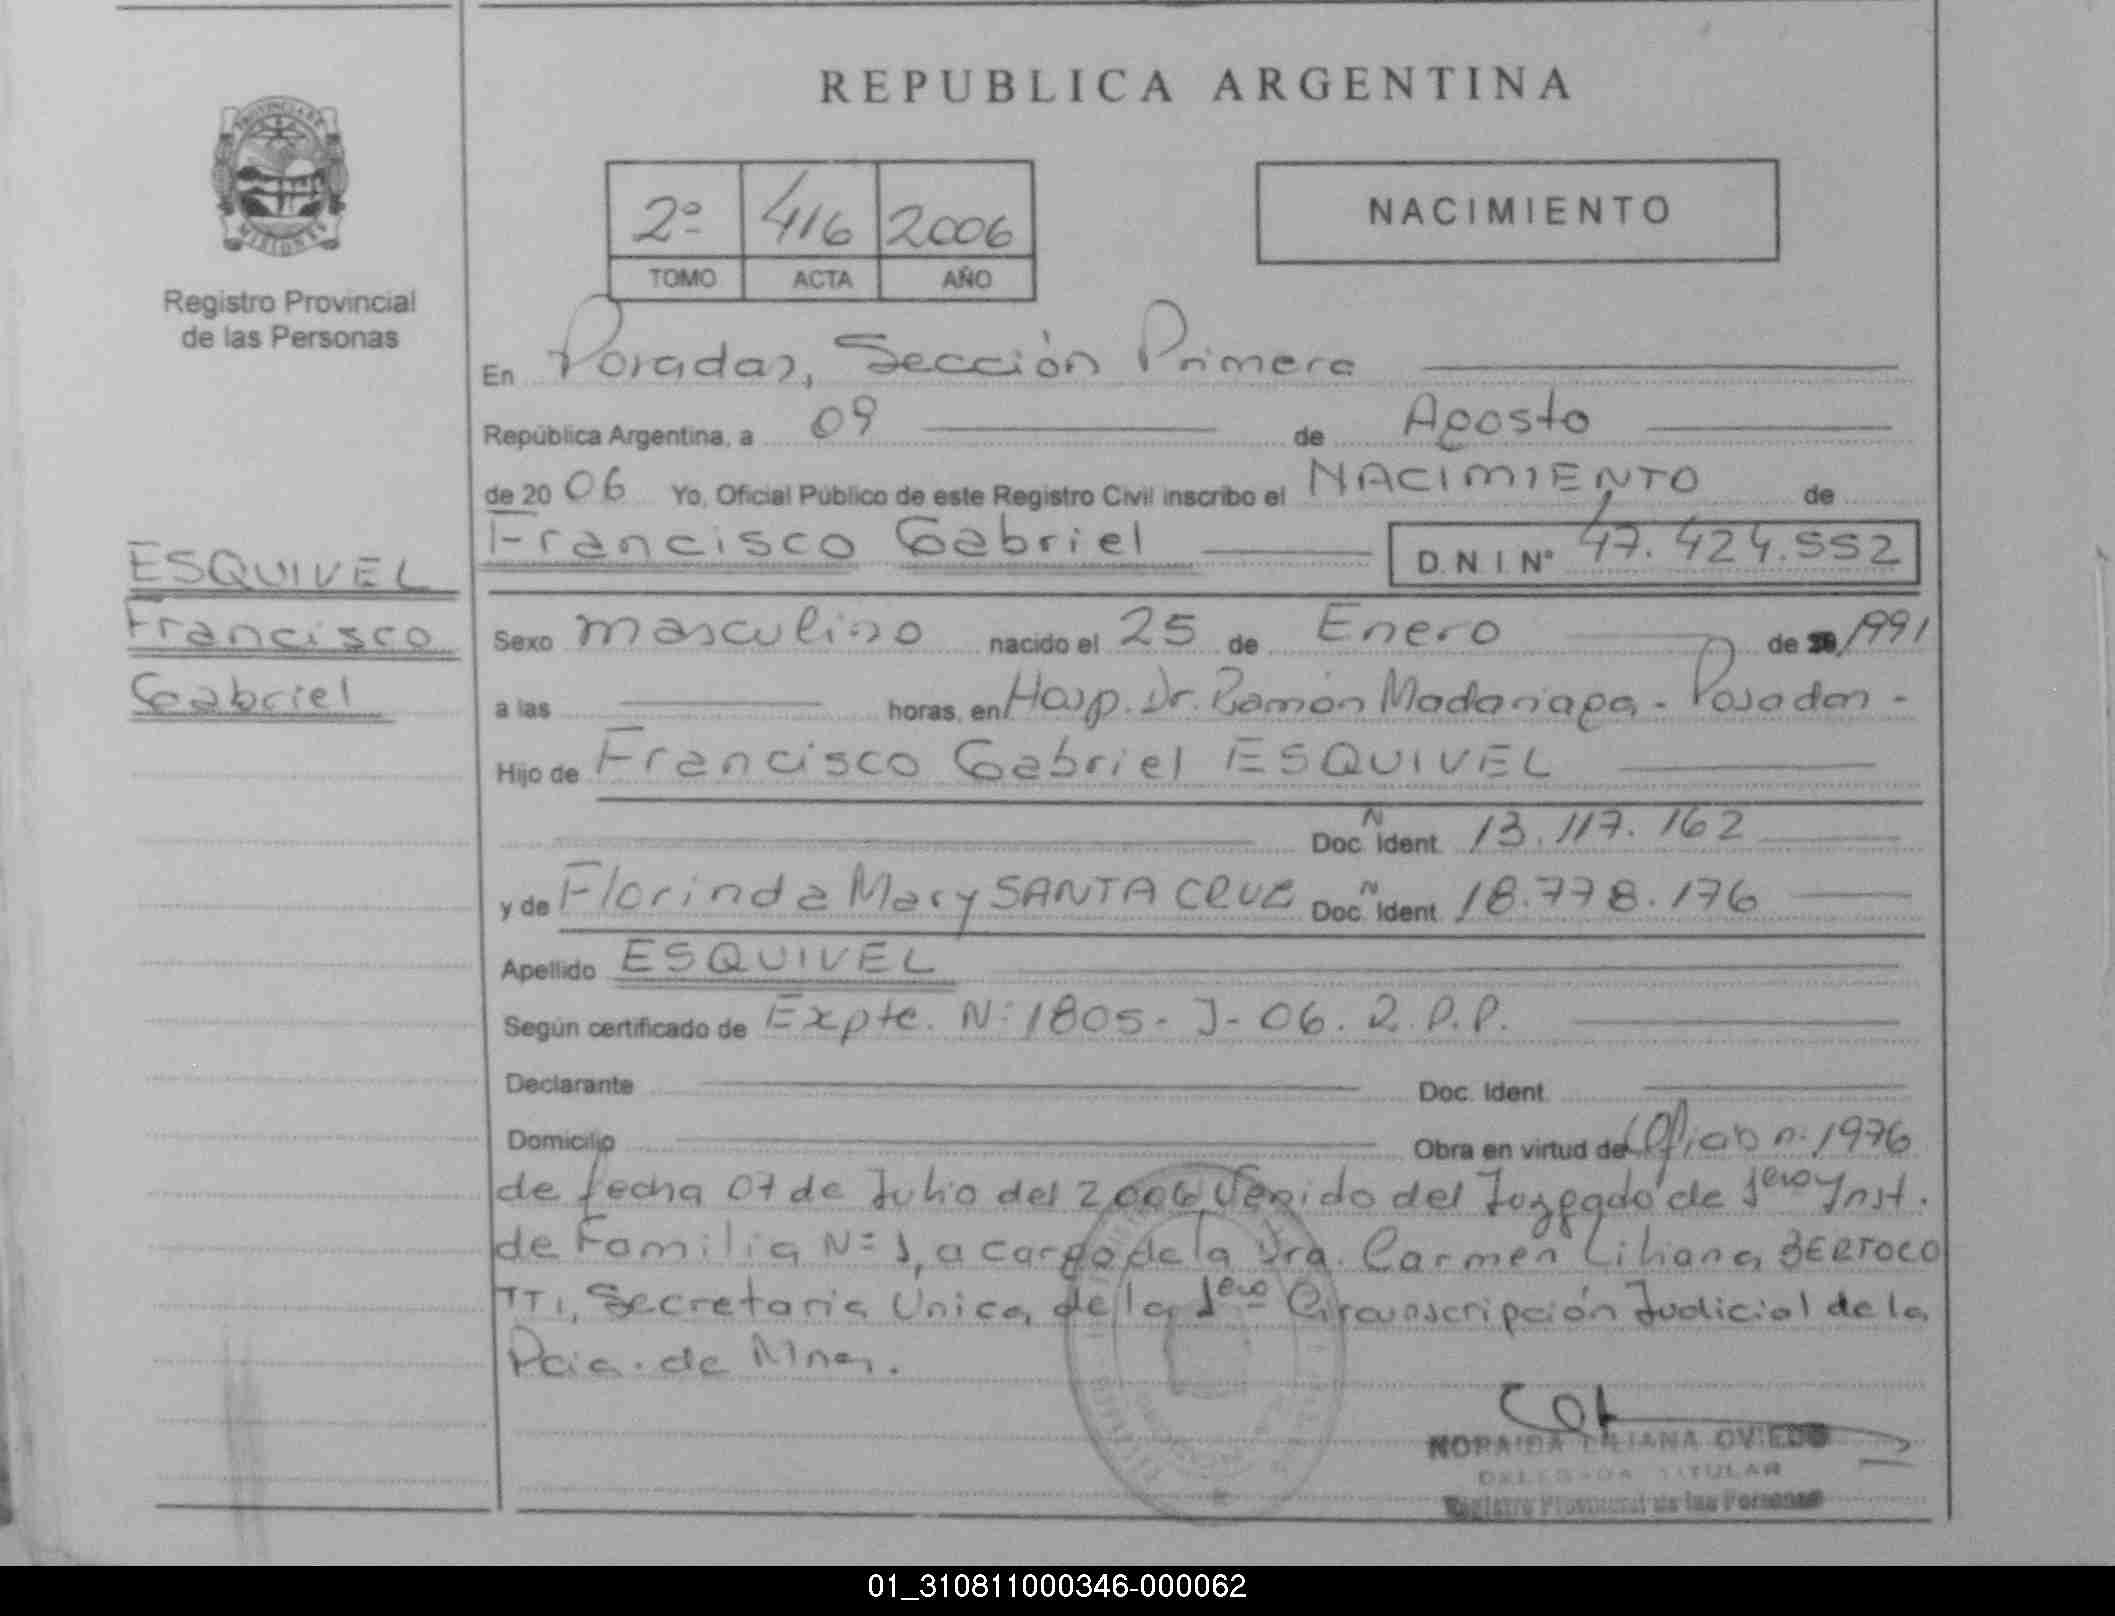 REPUBLICA ARGENTINA
PROVINCIA DE
MISIONES
Registro Provincial
de las Personas
2º 416 2006
TOMO ACTA AÑO
NACIMIENTO
En Posadas, Sección Primera
República Argentina, a 09 de Agosto
de 2006 Yo, Oficial Público de este Registro Civil inscribo el NACIMIENTO de
Francisco Gabriel D.N.I. Nº 47.424.552
ESQUIVEL
Francisco
Gabriel
Sexo masculino nacido el 25 de Enero de 1991
a las horas, en Hosp. Dr. Ramón Madariaga - Posadas -
Hijo de Francisco Gabriel ESQUIVEL
Doc. Ñ Ident. 13.117.162
y de Florinda Mary SANTA CRUZ Doc. Ñ Ident. 18.778.176
Apellido ESQUIVEL
Según certificado de Expte. Nº 1805 - J - 06. R.P.P.
Declarante Doc. Ident.
Domicilio Obra en virtud de Oficio nº 1976
de fecha 07 de Julio del 2006, Venido del Juzgado de 1era Inst.
de Familia Nº 1, a cargo de la Dra. Carmen Liliana BERTOCO
TTI, Secretaria Unica, de la 1era Circunscripción Judicial de la
Pcia. de Mnes.
NORAIDA LILIANA OVIEDO
DELEGADA TITULAR
Registro Provincial de las Personas
01_310811000346-000062